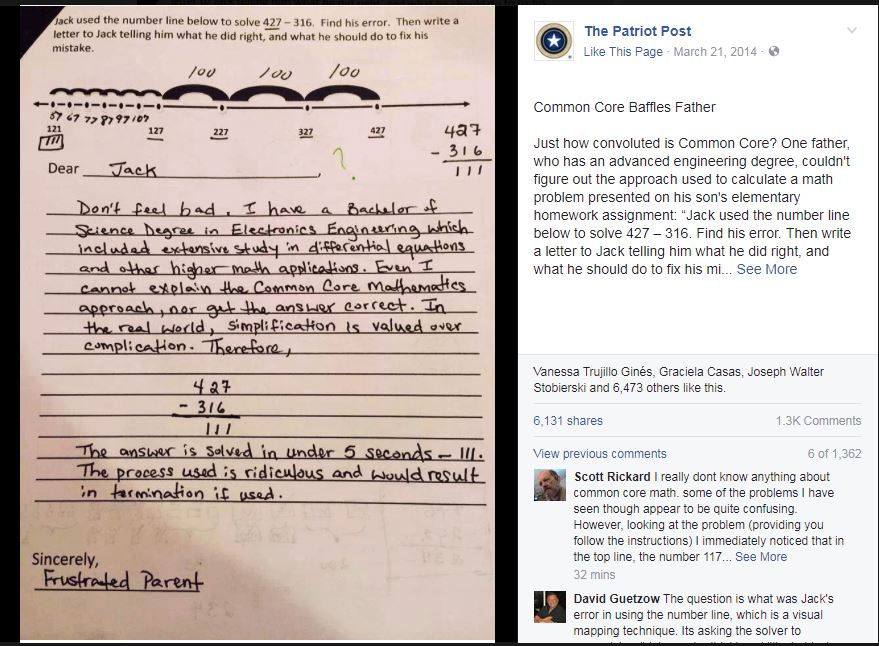 Jack used the number line below to solve 427 – 316. Find his error. Then write a
letter to Jack telling him what he did right, and what he should do to fix his
mistake.
100 100 100
57 67 77 87 97 107
121 127 227 327 427
111
427
- 316
111
Dear Jack, ?
Don't feel bad. I have a Bachelor of
Science Degree in Electronics Engineering which
included extensive study in differential equations
and other higher math applications. Even I
cannot explain the Common Core Mathematics
approach, nor get the answer correct. In
the real world, simplification is valued over
complication. Therefore,
427
- 316
111
The answer is solved in under 5 seconds — 111.
The process used is ridiculous and would result
in termination if used.
Sincerely,
Frustrated Parent
The Patriot Post
Like This Page · March 21, 2014 ·
Common Core Baffles Father
Just how convoluted is Common Core? One father,
who has an advanced engineering degree, couldn't
figure out the approach used to calculate a math
problem presented on his son's elementary
homework assignment: “Jack used the number line
below to solve 427 – 316. Find his error. Then write
a letter to Jack telling him what he did right, and
what he should do to fix his mi... See More
Vanessa Trujillo Ginés, Graciela Casas, Joseph Walter
Stobierski and 6,473 others like this.
6,131 shares 1.3K Comments
View previous comments 6 of 1,362
Scott Rickard I really dont know anything about
common core math. some of the problems I have
seen though appear to be quite confusing.
However, looking at the problem (providing you
follow the instructions) I immediately noticed that in
the top line, the number 117... See More
32 mins
David Guetzow The question is what was Jack's
error in using the number line, which is a visual
mapping technique. Its asking the solver to